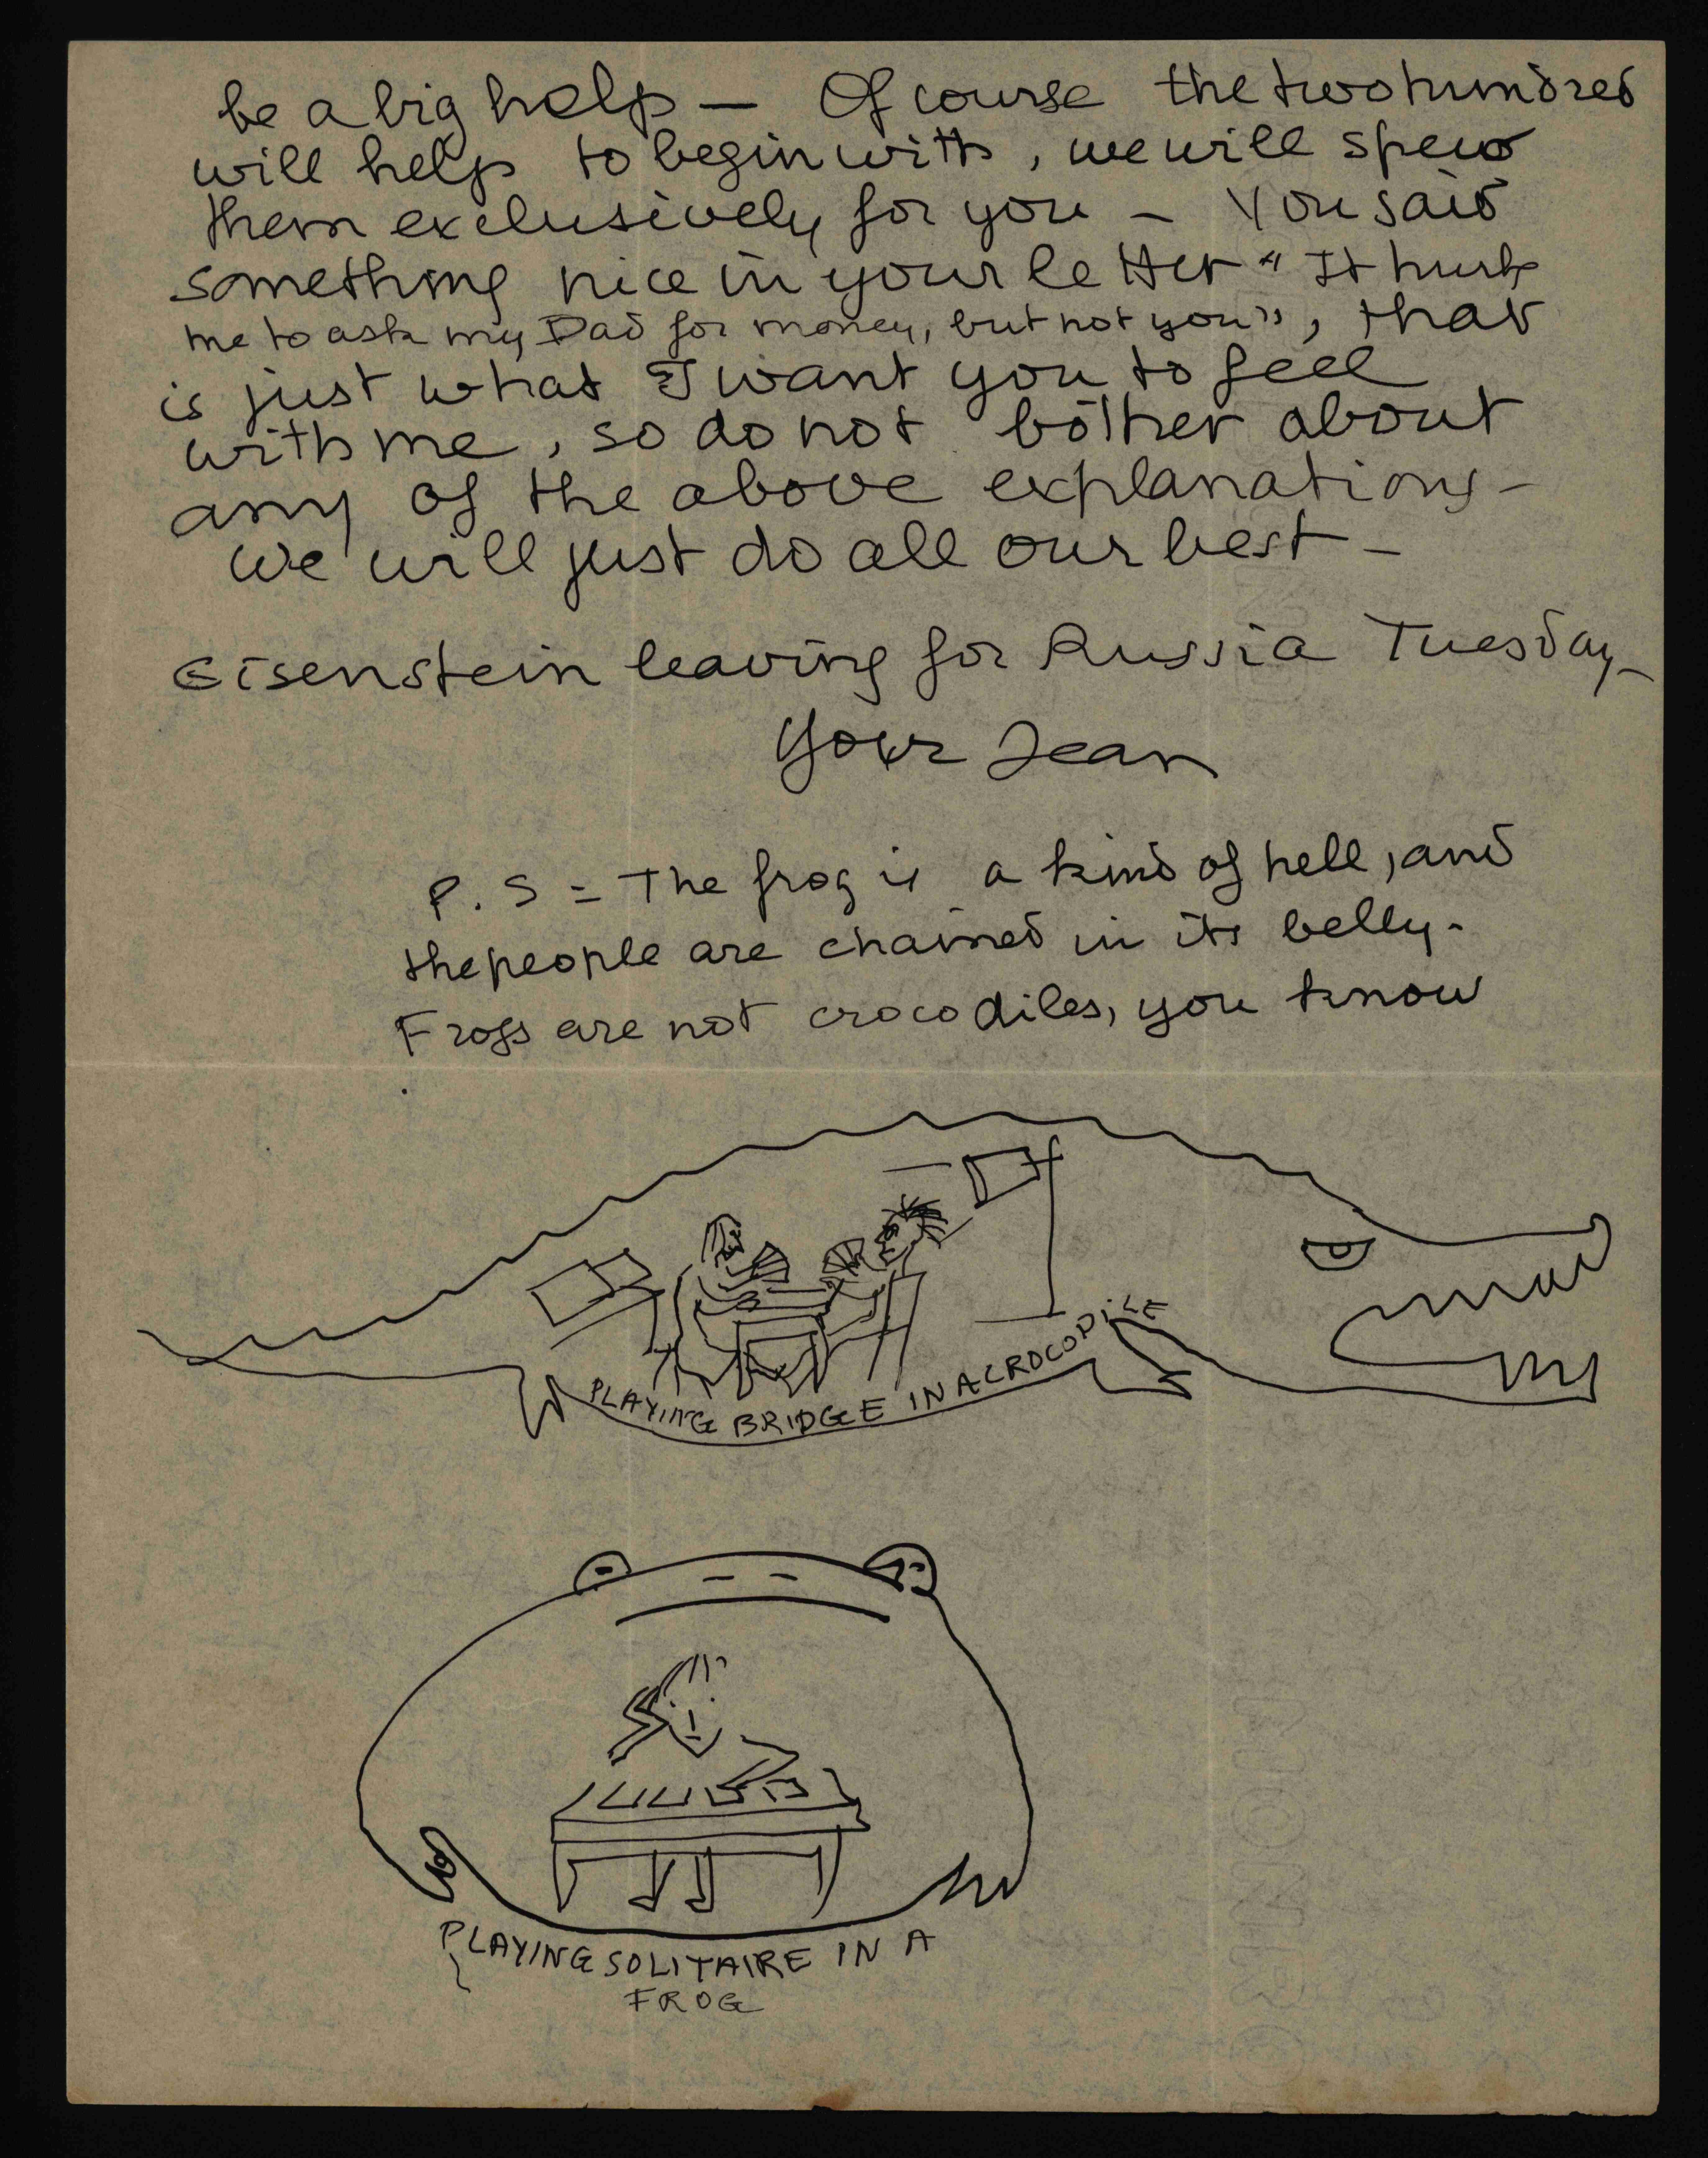 be a big help — Of course the two hundred
will help to begin with, we will spend
them exclusively for you — You said
something nice in your letter "It hurts
me to ask my Dad for money, but not you", that
is just what I want you to feel
with me, so do not bother about
any of the above explanations -
We will just do all our best —
Eisenstein leaving for Russia Tuesday —
Your Jean
P.S = The frog is a kind of hell, and
the people are chained in its belly.
Frogs are not crocodiles, you know
PLAYING BRIDGE IN A CROCODILE
PLAYING SOLITAIRE IN A
FROG